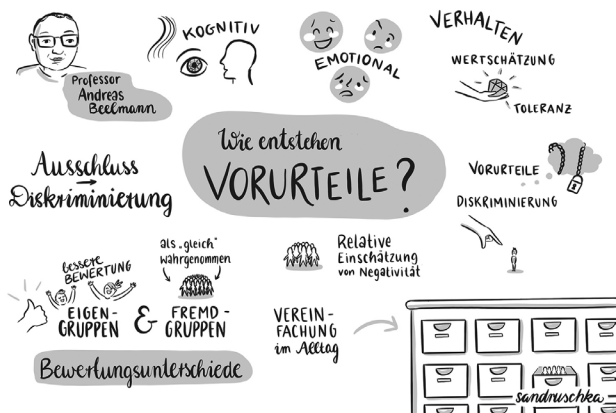 Professor
Andreas
Beelmann
KOGNITIV
EMOTIONAL
VERHALTEN
WERTSCHÄTZUNG
TOLERANZ
Wie entstehen
VORURTEILE?
Ausschluss
→
Diskriminierung
VORURTEILE
DISKRIMINIERUNG
bessere
BEWERTUNG
EIGEN-
GRUPPEN
&
als „gleich"
wahrgenommen
FREMD-
GRUPPEN
Bewertungsunterschiede
Relative
Einschätzung
von Negativität
VEREIN-
FACHUNG
im Alltag
sandruschka